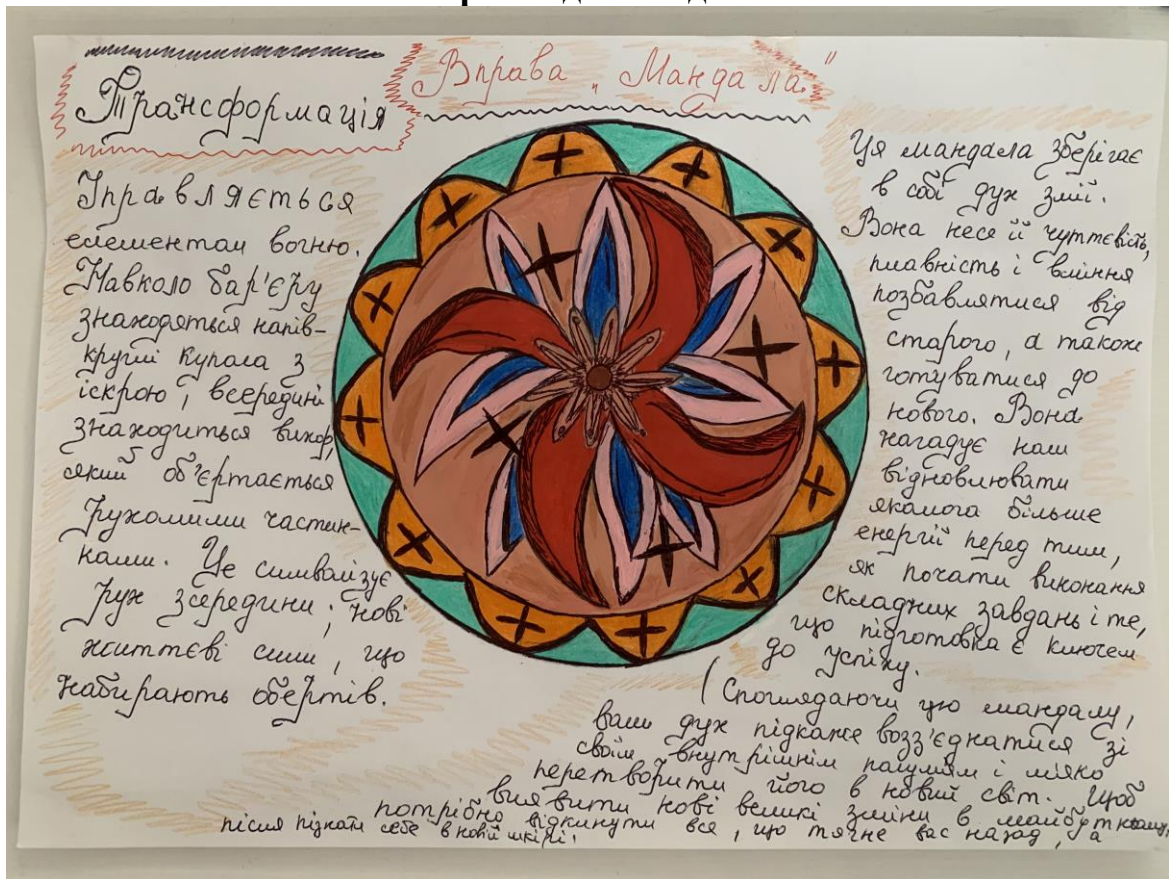 Трансформація
Вправа „Мандала"
Управляється
елементом вогню.
Навколо бар'єру
знаходяться напів-
круглі купола з
іскрою, всередині
знаходиться вихор,
який об'єртається
рухомими частин-
ками. Це символізує
рух зсередини; нові
життєві сили, що
набирають обертів.
Ця мандала зберігає
в собі дух змії.
Вона несе її чуттєвість,
плавність і вміння
позбавлятися від
старого, а також
готуватися до
нового. Вона
нагадує нам
відновлювати
якамога більше
енергії перед тим,
як почати виконання
складних завдань і те,
що підготовка є ключем
до успіху.
(Споглядаючи цю мандалу,
ваш дух підкаже возз'єднатися зі
своїм внутрішнім полум'ям і м'яко
перетворити його в новий світ. Щоб
виявити нові великі зміни в майбутньому,
потрібно відкинути все, що тягне вас назад, а
після пізнати себе в новій шкірі!